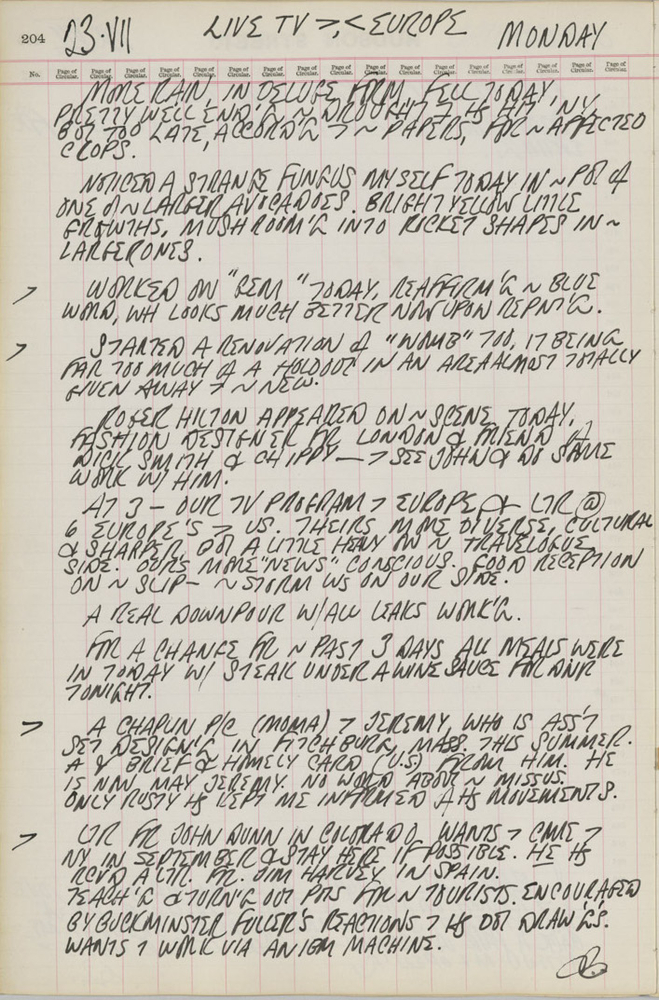 204 23·VII LIVE TV >,< EUROPE MONDAY
No. Page of Circular. Page of Circular. Page of Circular. Page of Circular. Page of Circular. Page of Circular. Page of Circular. Page of Circular. Page of Circular. Page of Circular. Page of Circular. Page of Circular. Page of Circular. Page of Circular. Page of Circular. Page of Circular. Page of Circular.
MORE RAIN, IN DELUGE FORM, FELL TODAY,
PRETTY WELL END'G ~ DROUGHT > HS HIT NY,
BUT TOO LATE, ACCORD'G > ~ PAPERS, FOR ~ AFFECTED
CROPS.
NOTICED A STRANGE FUNGUS MYSELF TODAY IN ~ POT of
ONE of ~ LARGER AVOCADOES. BRIGHT YELLOW LITTLE
GROWTHS, MUSHROOM'G INTO ROCKET SHAPES IN ~
LARGER ONES.
> WORKED ON "GEM" TODAY, REAFFIRM'G ~ BLUE
WORD, WH LOOKS MUCH BETTER NOW UPON REPNT'G.
> STARTED A RENOVATION of "WOMB" TOO, IT BEING
FAR TOO MUCH of A HOLDOUT IN AN AREA ALMOST TOTALLY
GIVEN AWAY > ~ NEW.
ROGER HILTON APPEARED ON ~ SCENE TODAY,
FASHION DESIGNER FR LONDON & FRIEND of
DICK SMITH & CHIPPY — > SEE JOHN & DO SOME
WORK W/ HIM.
AT 3 — OUR TV PROGRAM > EUROPE & LTR @
6 EUROPE'S > US. THEIRS MORE DIVERSE, CULTURAL
& SHARPER, BUT A LITTLE HEAVY ON ~ TRAVELOGUE
SIDE. OURS MORE "NEWS" CONSCIOUS. GOOD RECEPTION
ON ~ SLIP — ~ STORM WS ON OUR SIDE.
A REAL DOWNPOUR W/ ALL LEAKS WORK'G.
FOR A CHANGE FR ~ PAST 3 DAYS ALL MEALS WERE
IN TODAY W/ STEAK UNDER A WINE SAUCE FOR DNR
TONIGHT.
> A CHAPLIN P/C (MOMA) > JEREMY, WHO IS ASS'T
SET DESIGN'G IN FITCHBURG, MASS. THIS SUMMER.
A BRIEF & HOMELY CARD (U.S) FROM HIM. HE
IS NOW MAY JEREMY. NO WORD ABOUT ~ MISSUS.
ONLY RUSTY HS KEPT ME INFORMED of HS MOVEMENTS.
> LTR FR JOHN DUNN IN COLORADO. WANTS > COME >
NY IN SEPTEMBER & STAY HERE IF POSSIBLE. HE HS
RCVD A LTR. FR. JIM HARVEY IN SPAIN.
TEACH'G & TURN'G OUT POTS FOR ~ TOURISTS. ENCOURAGED
BY BUCKMINSTER FULLER'S REACTIONS > HS DOT DRAW'GS.
WANTS > WORK VIA AN IBM MACHINE.